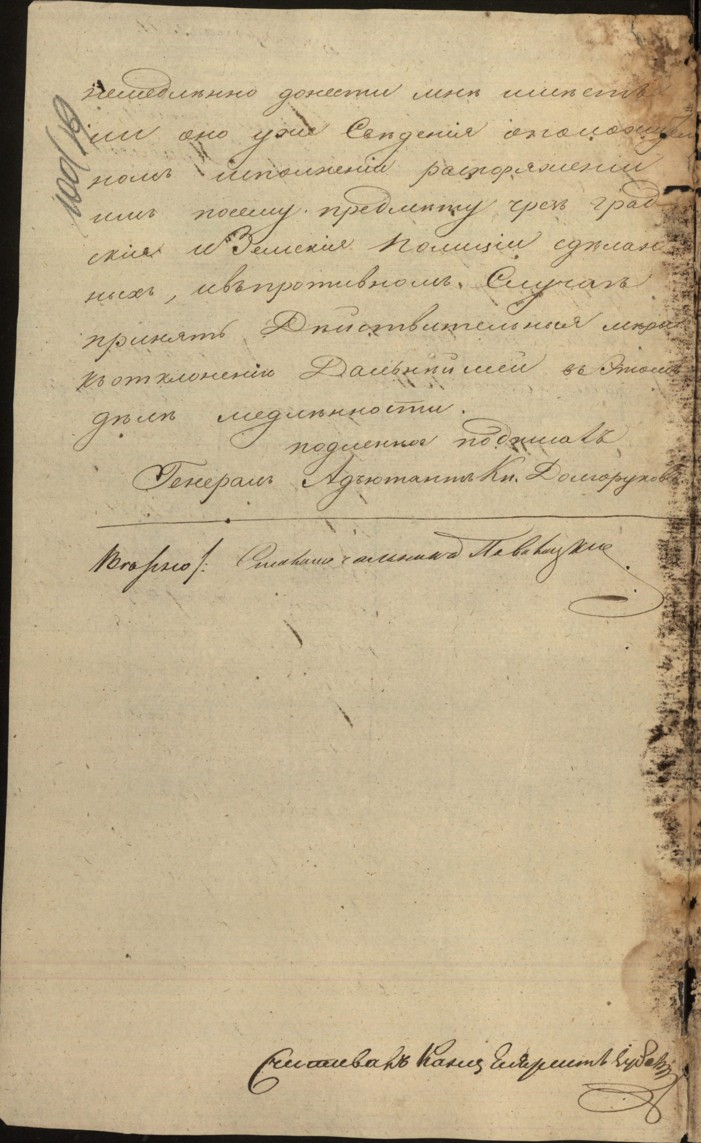 немедленно донести мнѣ имѣетъ
ли оно уже Сведения
номъ исполнении распоряжении
имъ посему предмету чрезъ град-
ския и Земския Полиции сделан
ныхъ, ивъпротивномъ Случаѣ
принять Действительныя меры
къотклонению Дальнейшей въ этомъ
деле медленности.
подленное подписалъ
Генералъ Адъютантъ Кн. Долгоруковъ
Вѣрно:
Считывалъ Канцеляристъ
100/19